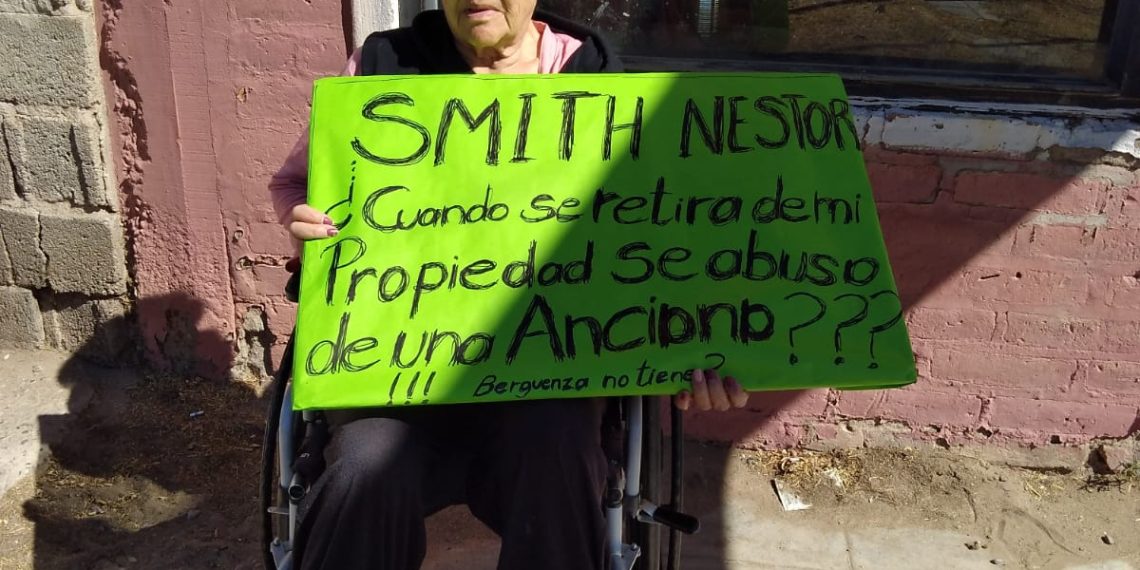 SMITH NESTOR
¿... Cuando se retira de mi
Propiedad Se abuso
de una Anciana???
!!! Berguenza no tiene?